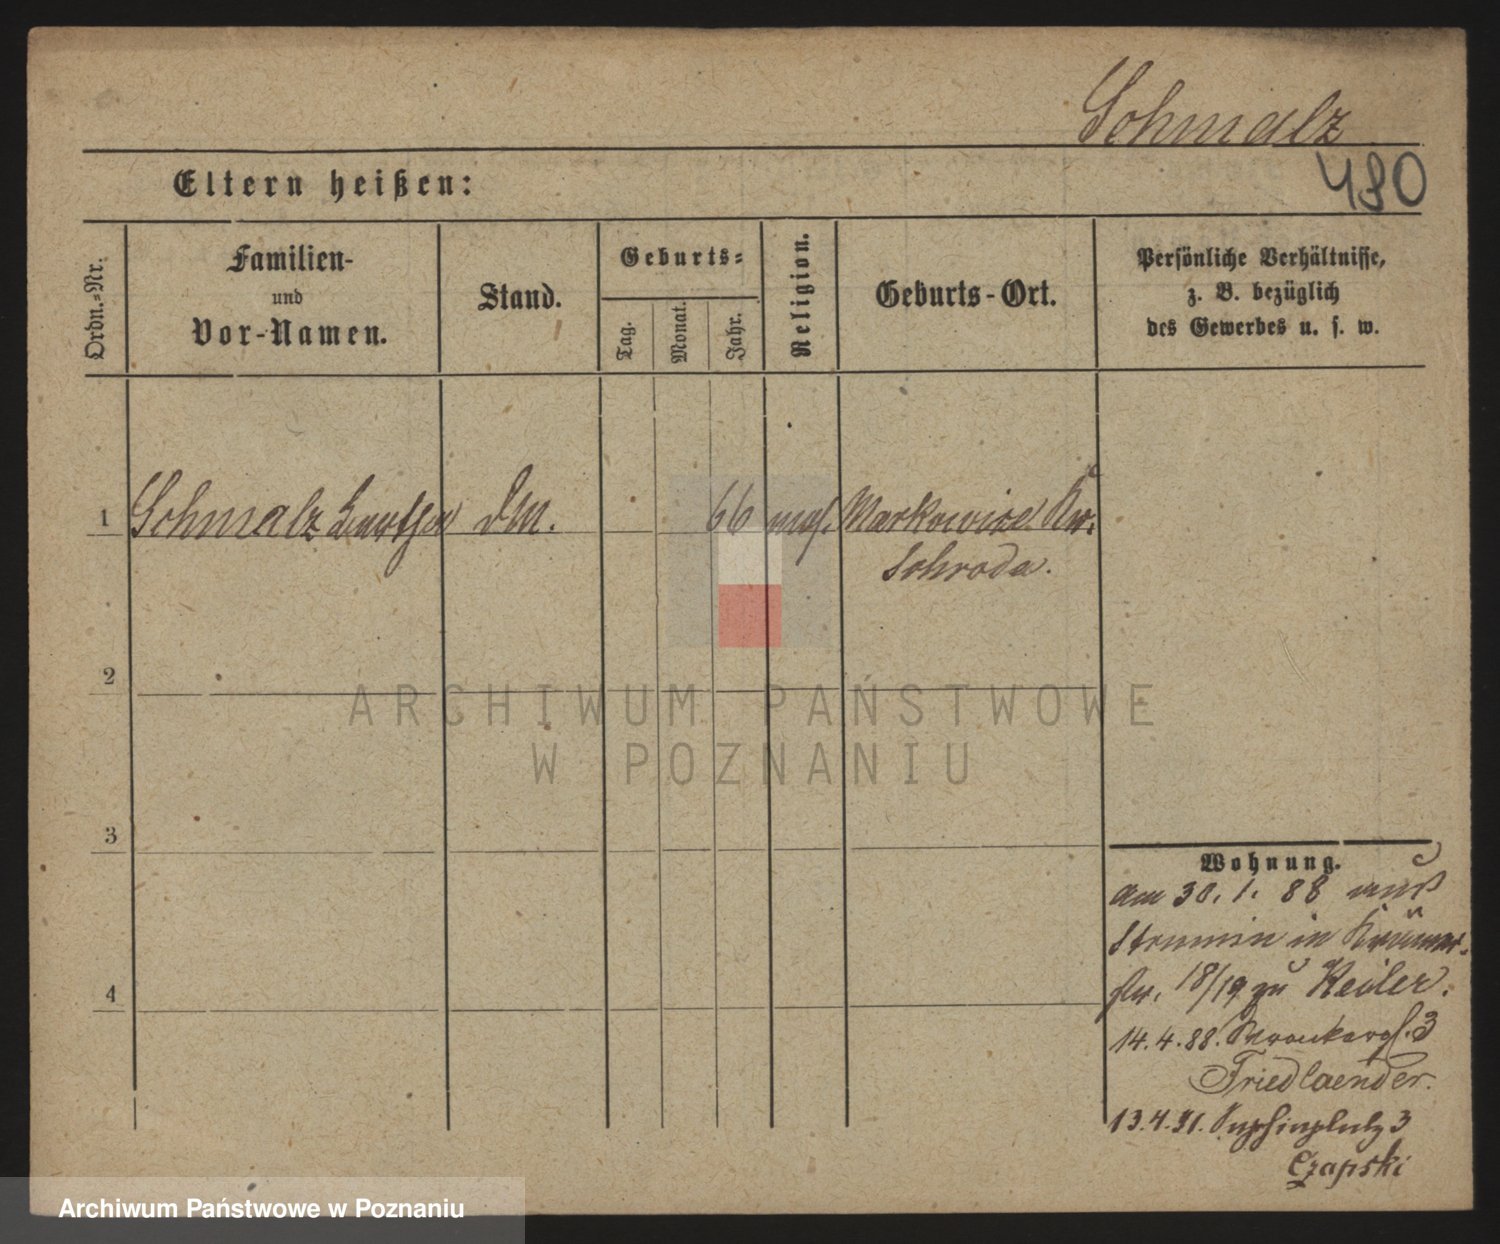 Schmalz
490
Eltern heißen:
Ordn.-Nr.
Familien-
und
Vor-Namen.
Stand.
Geburts-
Tag.
Monat.
Jahr.
Religion.
Geburts-Ort.
Persönliche Verhältnisse,
z. B. bezüglich
des Gewerbes u. s. w.
1 Schmalz DM. 66 mos. Markowice Kr.
Schroda.
2
3
4
Wohnung.
am 30. 1. 88
in
str. 18/19 zu Keiler.
14.4.88. Wronkergs. 3
Friedlaender.
13.4.91. Sapiehaplatz 3
Czapski
ARCHIWUM PAŃSTWOWE
W POZNANIU
Archiwum Państwowe w Poznaniu